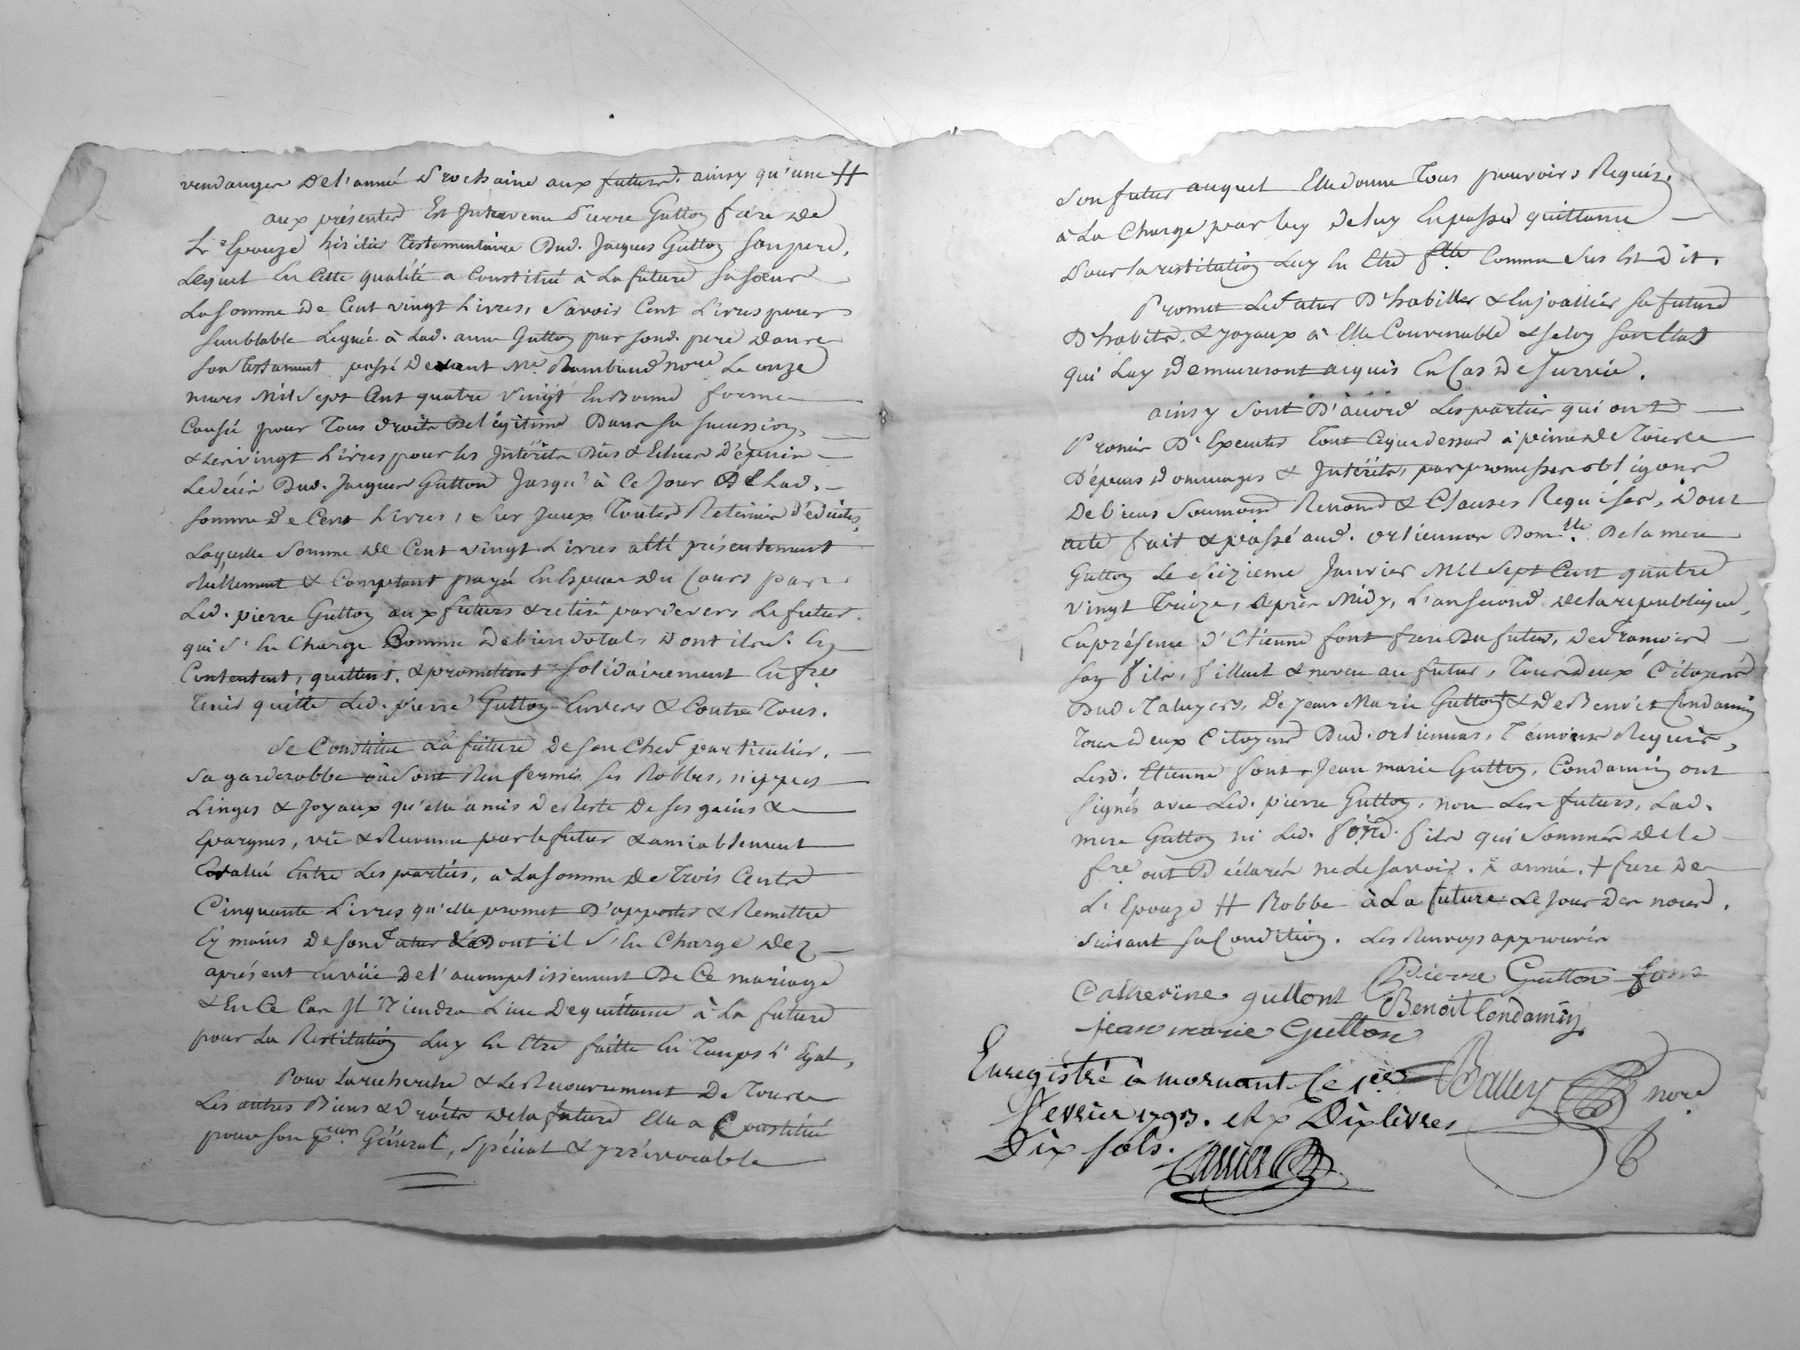 vendanges de l'année prochaine aux futurs. ainsy qu'une #
aux présentes Est Intervenu Pierre Gutton frère de
L'Epouze héritier Testamentaire Dud. Jacques Gutton son pere,
Lequel En Cette qualité a Constitué à La future sa sœur
La somme de Cent vingt Livres, Savoir Cent Livres pour
semblable Léguée à Lad. anne Gutton par sond. pere dans
son Testament passé Devant Me. Rambaud nore Le onze
mars Mil Sept Cent quatre vingt En Bonne forme
Causée pour Tous droits De Légitime Dans sa succession,
& Les vingt Livres pour les Intérêts Dûs & Echus Depuis
Le décès Dud. Jacques Gutton Jusqu'à Ce Jour De Lad.
somme de Cent Livres, sur Iceux Toutes Retenues déduites,
Laquelle somme de Cent vingt Livres a été présentement
réellement & Comptant payée En Espèces du Cours par
Led. pierre Gutton aux futurs & retirée par devers Le futur
qui s'en Charge Comme de bien dotal, dont ils s'en
Contentent, quittent, & promettent solidairement En fre
Tenir quitte Led. pierre Gutton Envers & Contre Tous.
Se Constitue La future de son Chef particulier,
sa garderobbe où sont Renfermés ses Robbes, nippes
Linges & Joyaux qu'elle a mis de reste de ses gains &
Epargnes, vü & Reconnu par le futur & amiablement
Evalué Entre Les parties, à La somme de Trois Cents
Cinquante Livres qu'elle promet D'apporter & Remettre
Ez mains de son futur dont il s'en Charge dez
aprésent En vüe de l'accomplissement De Ce mariage
& En Ce Cas Il Tiendra Lieu de quittance à La future
pour La Restitution Luy En Etre faitte En Temps & Egal,
Pour La recherche & Le Recouvrement De Tous
Les autres Biens & Droits de la future Elle a Constitué
pour son pcur Général, spécial & yrrévocable
son futur auquel Elle donne Tous pouvoirs Requis,
à La Charge par luy de luy En passer quittance
Pour la restitution Luy En Etre ftte Comme Sus Est dit.
Promet Led. futur D'habiller & Enjoallier sa future
D'habits & joyaux à Elle Convenable & selon son Etat
qui Luy Demeureront acquis En Cas de survie.
ainsy sont D'accord Les parties qui ont
Promis D'Executer Tout Ce que dessus à peine de Tous
Dépens dommages & Intérêts, par promesses obligons
de biens Soumions Renons & Clauses Requises, dont
acte fait & passé aud. orliennas Dom.lle De la mere
Gutton Le seizieme Janvier Mil Sept Cent quatre
vingt Treize, après Midy, L'an second de la république,
En présence d'Etienne font frere du futur, de françois
son fils, filleul & neveu au futur, Tous deux Citoyens
Dud Taluyers, De Jean Marie Gutton & de Benoit Condamin
Tous deux Citoyens Dud. orliennas, Témoins Requis,
Lesd. Etienne font, Jean marie Gutton, Condamin ont
signés avec Led. pierre Gutton, non Les futurs, Lad.
mere Gutton ni Led. font fils qui Sommés de le
fre ont Déclarés ne le savoir. x année. + frere de
L'Epouze # Robbe à La future Le Jour des noces.
suivant sa Condition. Les Renvoys approuvés
Catherine guttont Pierre Gutton font
Benoit Condamin
jean marie Gutton
Enregistré à mornant Le 1er
Fevrier 1793. et x Dix livres
Dix sols.
nore